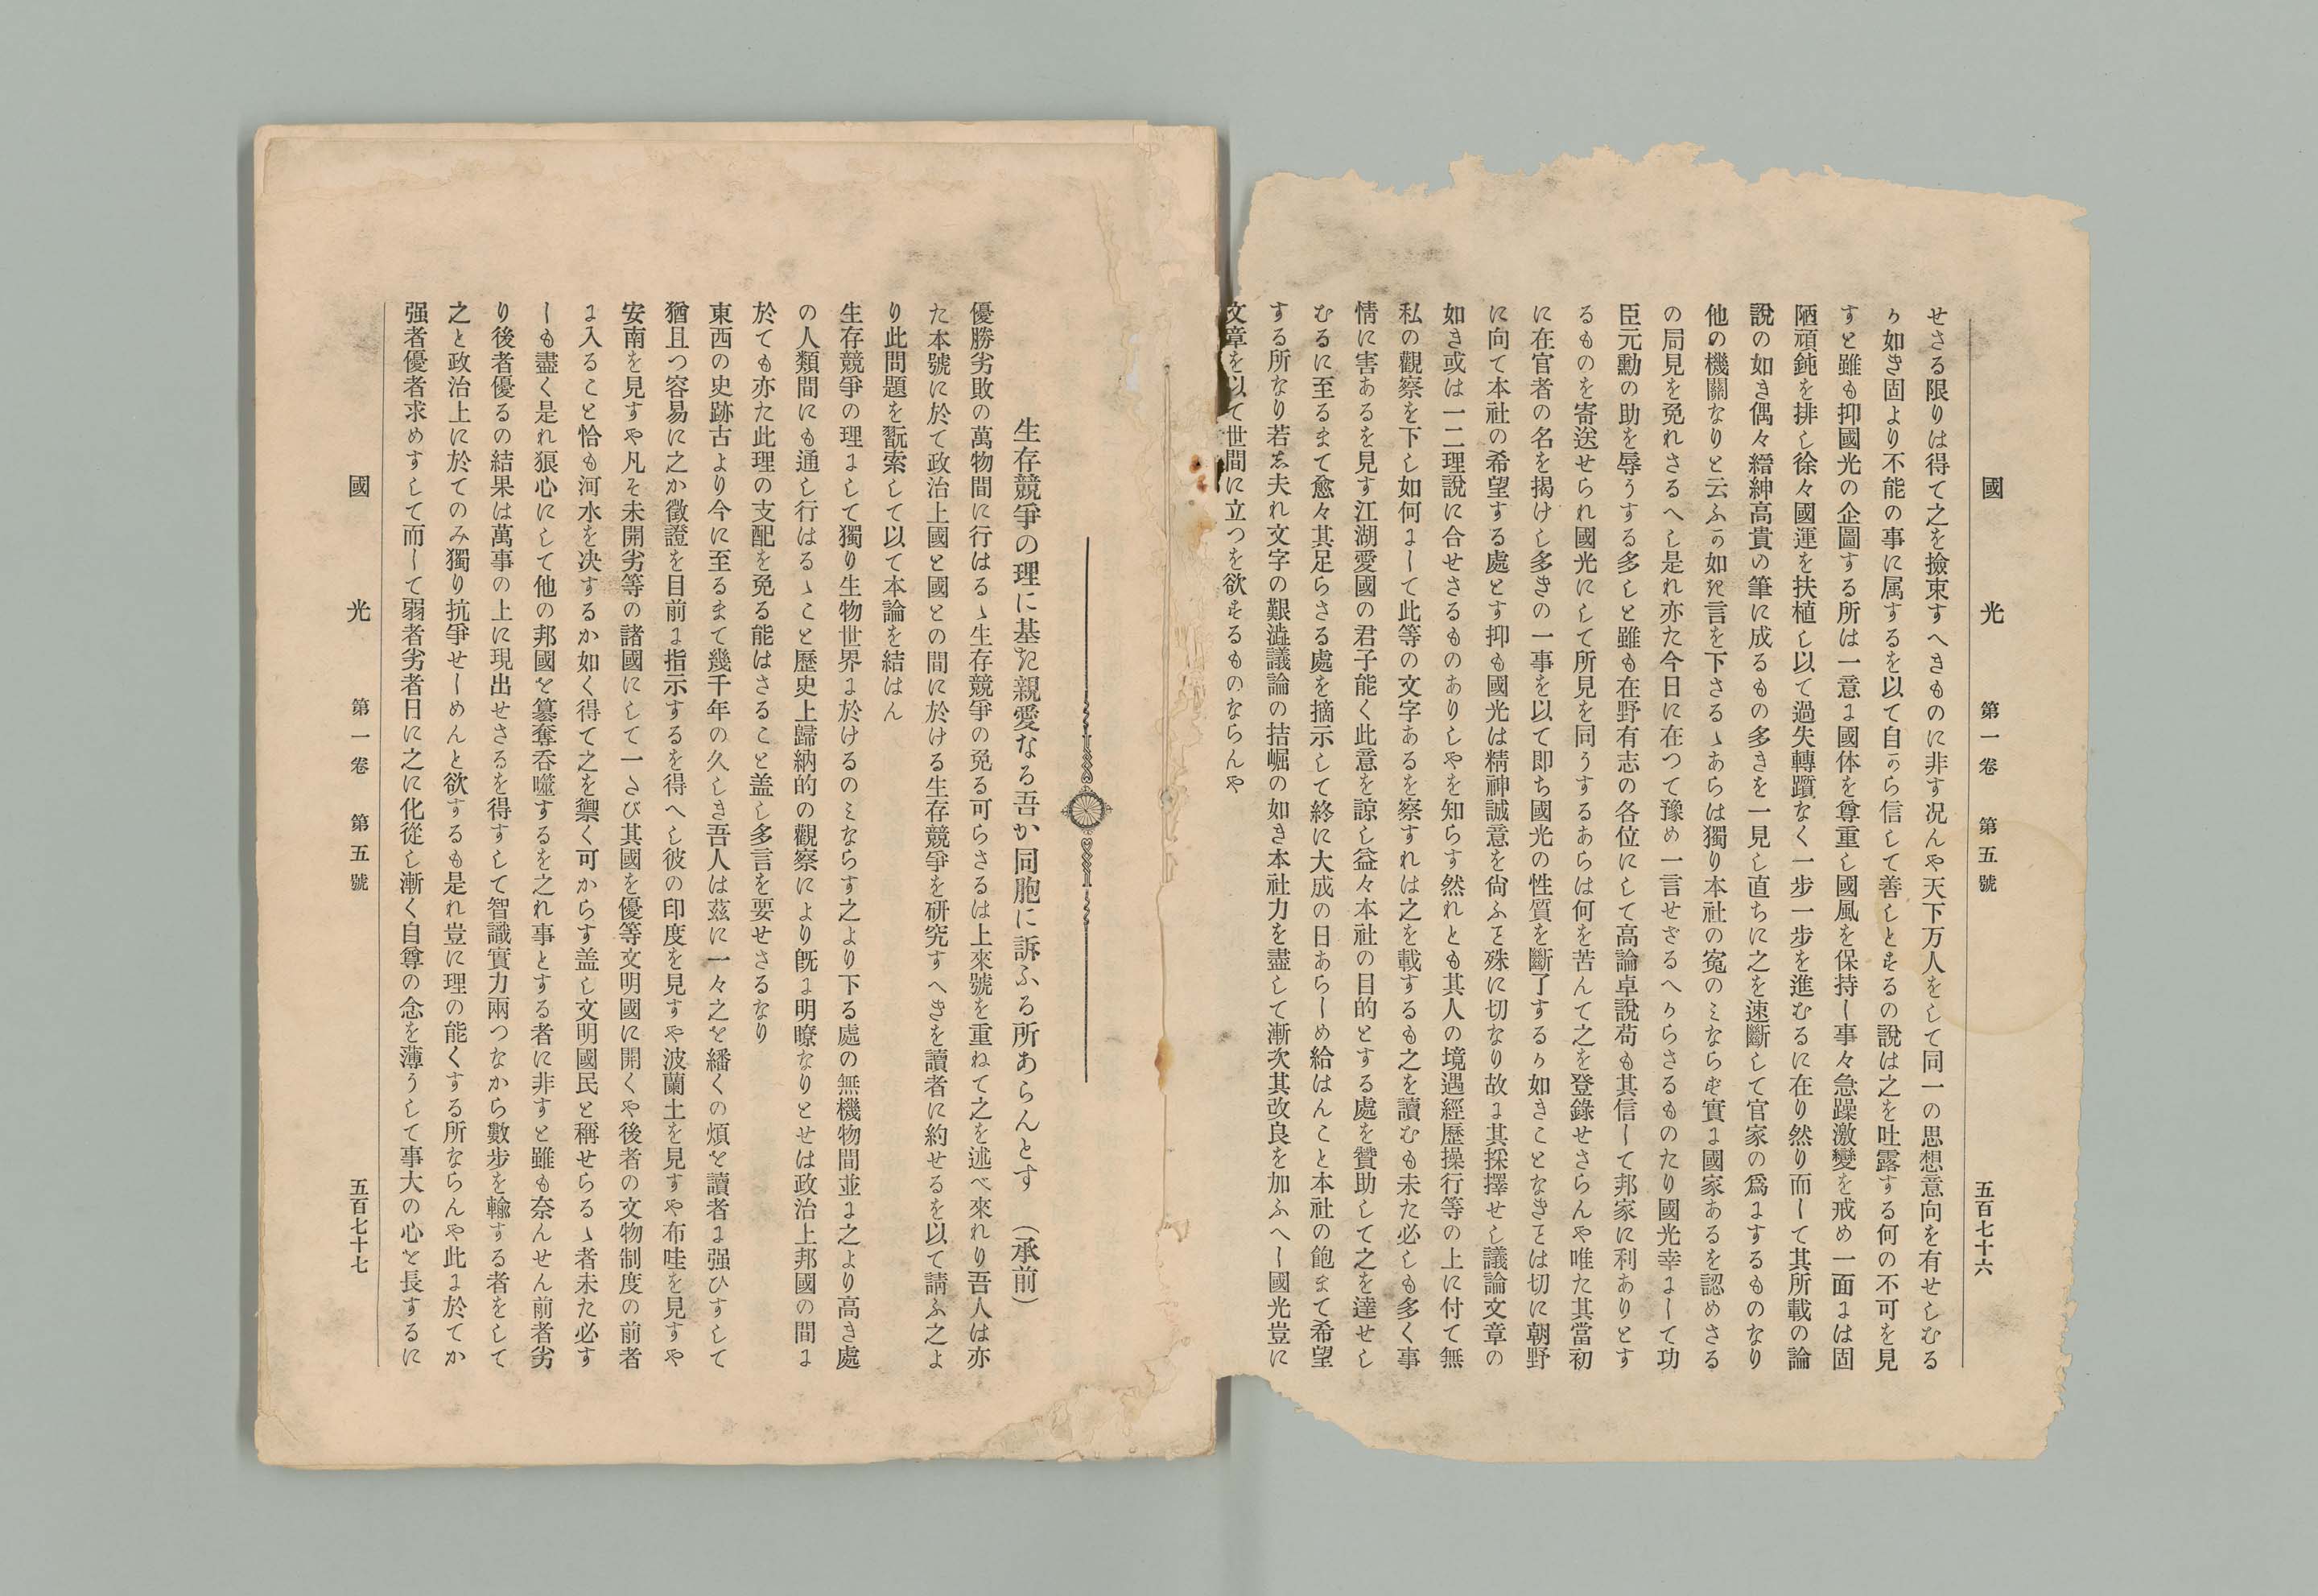 國光 第一卷 第五號 五百七十六
せさる限りは得て之を撿束すへきものに非す况んや天下万人をして同一の思想意向を有せしむる
か如き固より不能の事に属するを以て自から信して善しとするの說は之を吐露する何の不可を見
すと雖も抑國光の企圖する所は一意に國体を尊重し國風を保持し事々急躁激變を戒め一面には固
陋頑鈍を排し徐々國運を扶植し以て過失轉躓なく一步一步を進むるに在り然り而して其所載の論
說の如き偶々縉紳高貴の筆に成るもの多きを一見し直ちに之を速斷して官家の爲にするものなり
他の機關なりと云ふか如き言を下さるゝあらは獨り本社の寃のミならす實に國家あるを認めさる
の局見を免れさるへし是れ亦た今日に在つて豫め一言せざるへからさるものたり國光幸にして功
臣元勳の助を辱うする多しと雖も在野有志の各位にして高論卓說苟も其信して邦家に利ありとす
るものを寄送せられ國光にして所見を同うするあらは何を苦んて之を登錄せさらんや唯た其當初
に在官者の名を揭けし多きの一事を以て即ち國光の性質を斷了するか如きことなきとは切に朝野
に向て本社の希望する處とす抑も國光は精神誠意を尙ふと殊に切なり故に其採擇せし議論文章の
如き或は一二理說に合せさるものありしやを知らす然れとも其人の境遇經歷操行等の上に付て無
私の觀察を下し如何にして此等の文字あるを察すれは之を載するも之を讀むも未た必しも多く事
情に害あるを見す江湖愛國の君子能く此意を諒し益々本社の目的とする處を贊助して之を達せし
むるに至るまて愈々其足らさる處を摘示して終に大成の日あらしめ給はんこと本社の飽まて希望
する所なり若し夫れ文字の艱澁議論の拮崛の如き本社力を盡して漸次其改良を加ふへし國光豈に
文章を以て世間に立つを欲するものならんや
生存競爭の理に基き親愛なる吾か同胞に訴ふる所あらんとす (承前)
優勝劣敗の萬物間に行はるゝ生存競爭の免る可らさるは上來號を重ねて之を述べ來れり吾人は亦
た本號に於て政治上國と國との間に於ける生存競爭を硏究すへきを讀者に約せるを以て請ふ之よ
り此問題を翫索して以て本論を結はん
生存競爭の理にして獨り生物世界に於けるのミならす之より下る處の無機物間並に之より高き處
の人類間にも通し行はるゝこと歷史上歸納的の觀察により旣に明瞭なりとせは政治上邦國の間に
於ても亦た此理の支配を免る能はさること盖し多言を要せさるなり
東西の史跡古より今に至るまて幾千年の久しき吾人は茲に一々之を繙くの煩を讀者に强ひすして
猶且つ容易に之か徵證を目前に指示するを得へし彼の印度を見すや波蘭土を見すや布哇を見すや
安南を見すや凡そ未開劣等の諸國にして一さび其國を優等文明國に開くや後者の文物制度の前者
に入ること恰も河水を决するか如く得て之を禦く可からす盖し文明國民と稱せらるゝ者未た必す
しも盡く是れ狼心にして他の邦國を簒奪呑噬するを之れ事とする者に非すと雖も奈んせん前者劣
り後者優るの結果は萬事の上に現出せさるを得すして智識實力兩つなから數步を輸する者をして
之と政治上に於てのみ獨り抗爭せしめんと欲するも是れ豈に理の能くする所ならんや此に於てか
强者優者求めすして而して弱者劣者日に之に化從し漸く自尊の念を薄うして事大の心を長するに
國光 第一卷 第五號 五百七十七